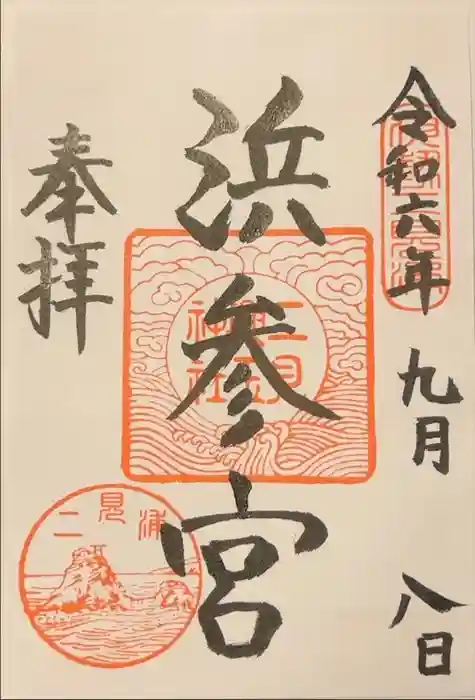 令和六年 九月 八日
浜参宮
奉拝
二見
興玉
神社
二見浦